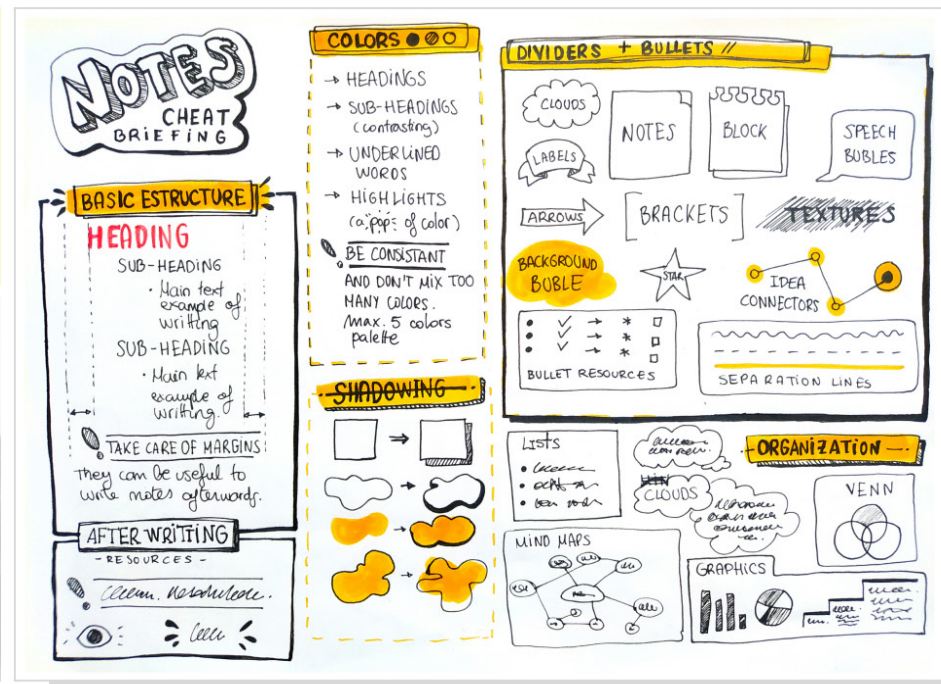 NOTES
CHEAT
BRIEFING
BASIC ESTRUCTURE
HEADING
SUB-HEADING
• Main text
example of
writting
SUB-HEADING
• Main text
example of
writting.
TAKE CARE OF MARGINS
They can be useful to
write notes afterwards.
AFTER WRITTING
- RESOURCES -
COLORS
→ HEADINGS
→ SUB-HEADINGS
(contrasting)
→ UNDERLINED
WORDS
→ HIGHLIGHTS
(a "pop" of color)
BE CONSISTANT
AND DON'T MIX TOO
MANY COLORS.
Max. 5 colors
palette
SHADOWING
DIVIDERS + BULLETS //
CLOUDS
NOTES
BLOCK
SPEECH
BUBLES
LABELS
ARROWS
BRACKETS
TEXTURES
BACKGROUND
BUBLE
STAR
IDEA
CONNECTORS
BULLET RESOURCES
SEPARATION LINES
LISTS
CLOUDS
ORGANIZATION
VENN
MIND MAPS
GRAPHICS